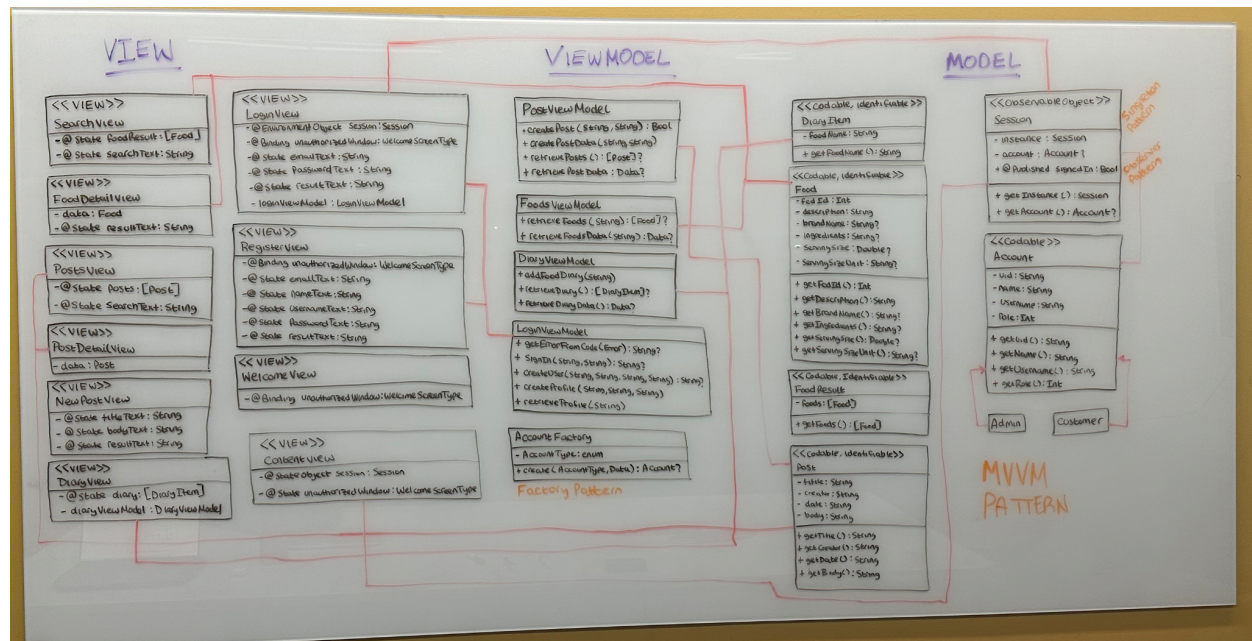 VIEW
VIEWMODEL
MODEL
<<VIEW>>
SearchView
-@State foodResult:[Food]
-@State searchText:String
<<VIEW>>
FoodDetailView
- data: Food
-@State resultText: String
<<VIEW>>
PostsView
-@State Posts:[Post]
-@State SearchText:String
<<VIEW>>
PostDetailView
- data: Post
<<VIEW>>
NewPostView
-@State titleText: String
-@State bodyText: String
-@State resultText: String
<<VIEW>>
DiaryView
-@State diary:[DiaryItem]
- diaryViewModel: DiaryViewModel
<<VIEW>>
LoginView
-@EnvironmentObject Session:Session
-@Binding unauthorizedWindow:WelcomeScreenType
-@State emailText:String
-@State PasswordText:String
-@State resultText:String
- loginViewModel: LoginViewModel
<<VIEW>>
RegisterView
-@Binding unauthorizedWindow:WelcomeScreenType
-@State emailText:String
-@State nameText:String
-@State UsernameText:String
-@State PasswordText:String
-@State resultText:String
<<VIEW>>
WelcomeView
-@Binding unauthorizedWindow:WelcomeScreenType
<<VIEW>>
ContentView
-@StateObject Session:Session
-@State unauthorizedWindow:WelcomeScreenType
PostViewModel
+createPost(String,String): Bool
+createPostData(String,String)
+retrievePosts(): [Post]?
+retrievePostData: Data?
FoodsViewModel
+retrieveFoods(String):[Food]?
+retrieveFoodsData(String):Data?
DiaryViewModel
+addFoodDiary(String)
+retrieveDiary():[DiaryItem]?
+retrieveDiaryData():Data?
LoginViewModel
+getErrorFromCode(Error): String?
+ SignIn(String,String): String?
+ createUser(String,String,String,String): String?
+ createProfile(String,String,String)
+retrieveProfile(String)
AccountFactory
- AccountType:enum
+create(AccountType,Data): Account?
Factory Pattern
<<codable, identifiable>>
DiaryItem
- FoodName: String
+getFoodName(): String
<<Codable, identifiable>>
Food
- description: String
- brandName: String?
- ingredients: String?
- ServingSize: Double?
- ServingSizeUnit: String?
+getDescription():String
+getBrandName():String?
+getIngredients():String?
+getServingSize():Double?
+getServingSizeUnit():String?
<<Codable, Identifiable>>
FoodResult
- foods:[Food]
+getFoods():[Food]
<<codable, identifiable>>
Post
- title: String
- creator: String
- date: String
- body: String
+getTitle(): String
+getCreator(): String
+getDate(): String
+getBody(): String
<<ObservableObject>>
Session
- instance: Session
- account: Account?
+ @Published signedIn: Bool
+getInstance(): Session
+getAccount(): Account?
Singleton Pattern
Observer Pattern
<<Codable>>
Account
- uid: String
- Name: String
- Username: String
- Role: Int
+getUid(): String
+getName(): String
+getUsername(): String
+getRole(): Int
Admin
Customer
MVVM
PATTERN